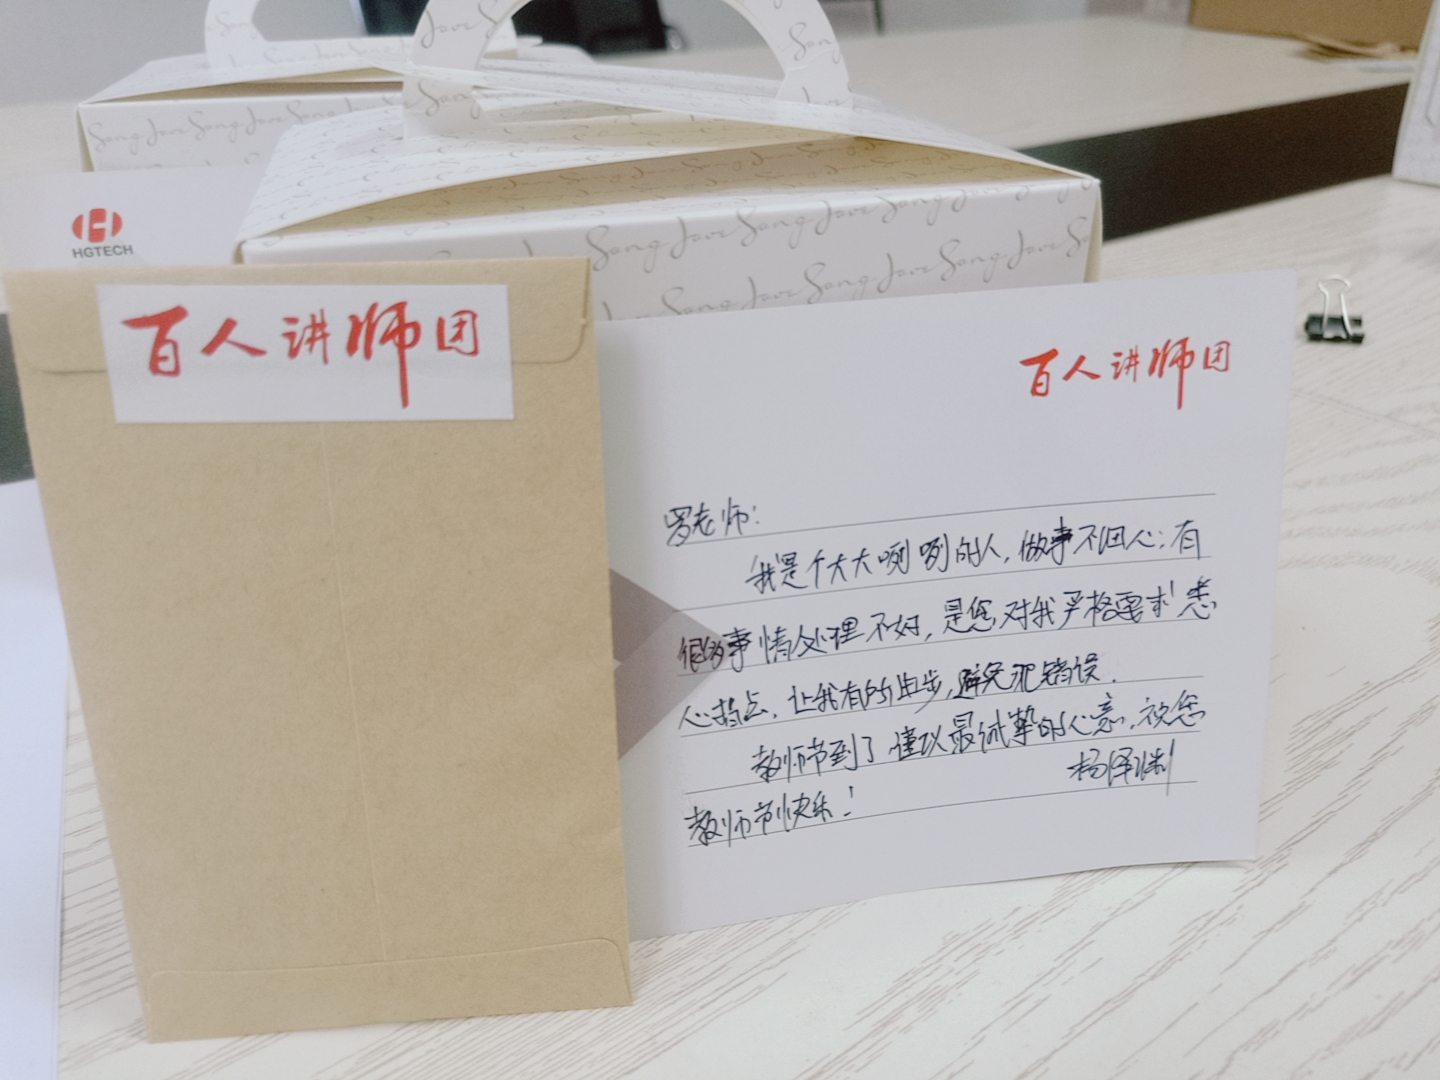 Song Jave Song Jave Song Jave
HGTECH
百人讲师团
百人讲师团
罗老师：
我是个大大咧咧的人，做事不细心；有
很多事情处理不好，是您对我严格要求！悉
心指点，让我有所进步，避免犯错误.
教师节到了，谨以最诚挚的心意，祝您
教师节快乐！
杨泽